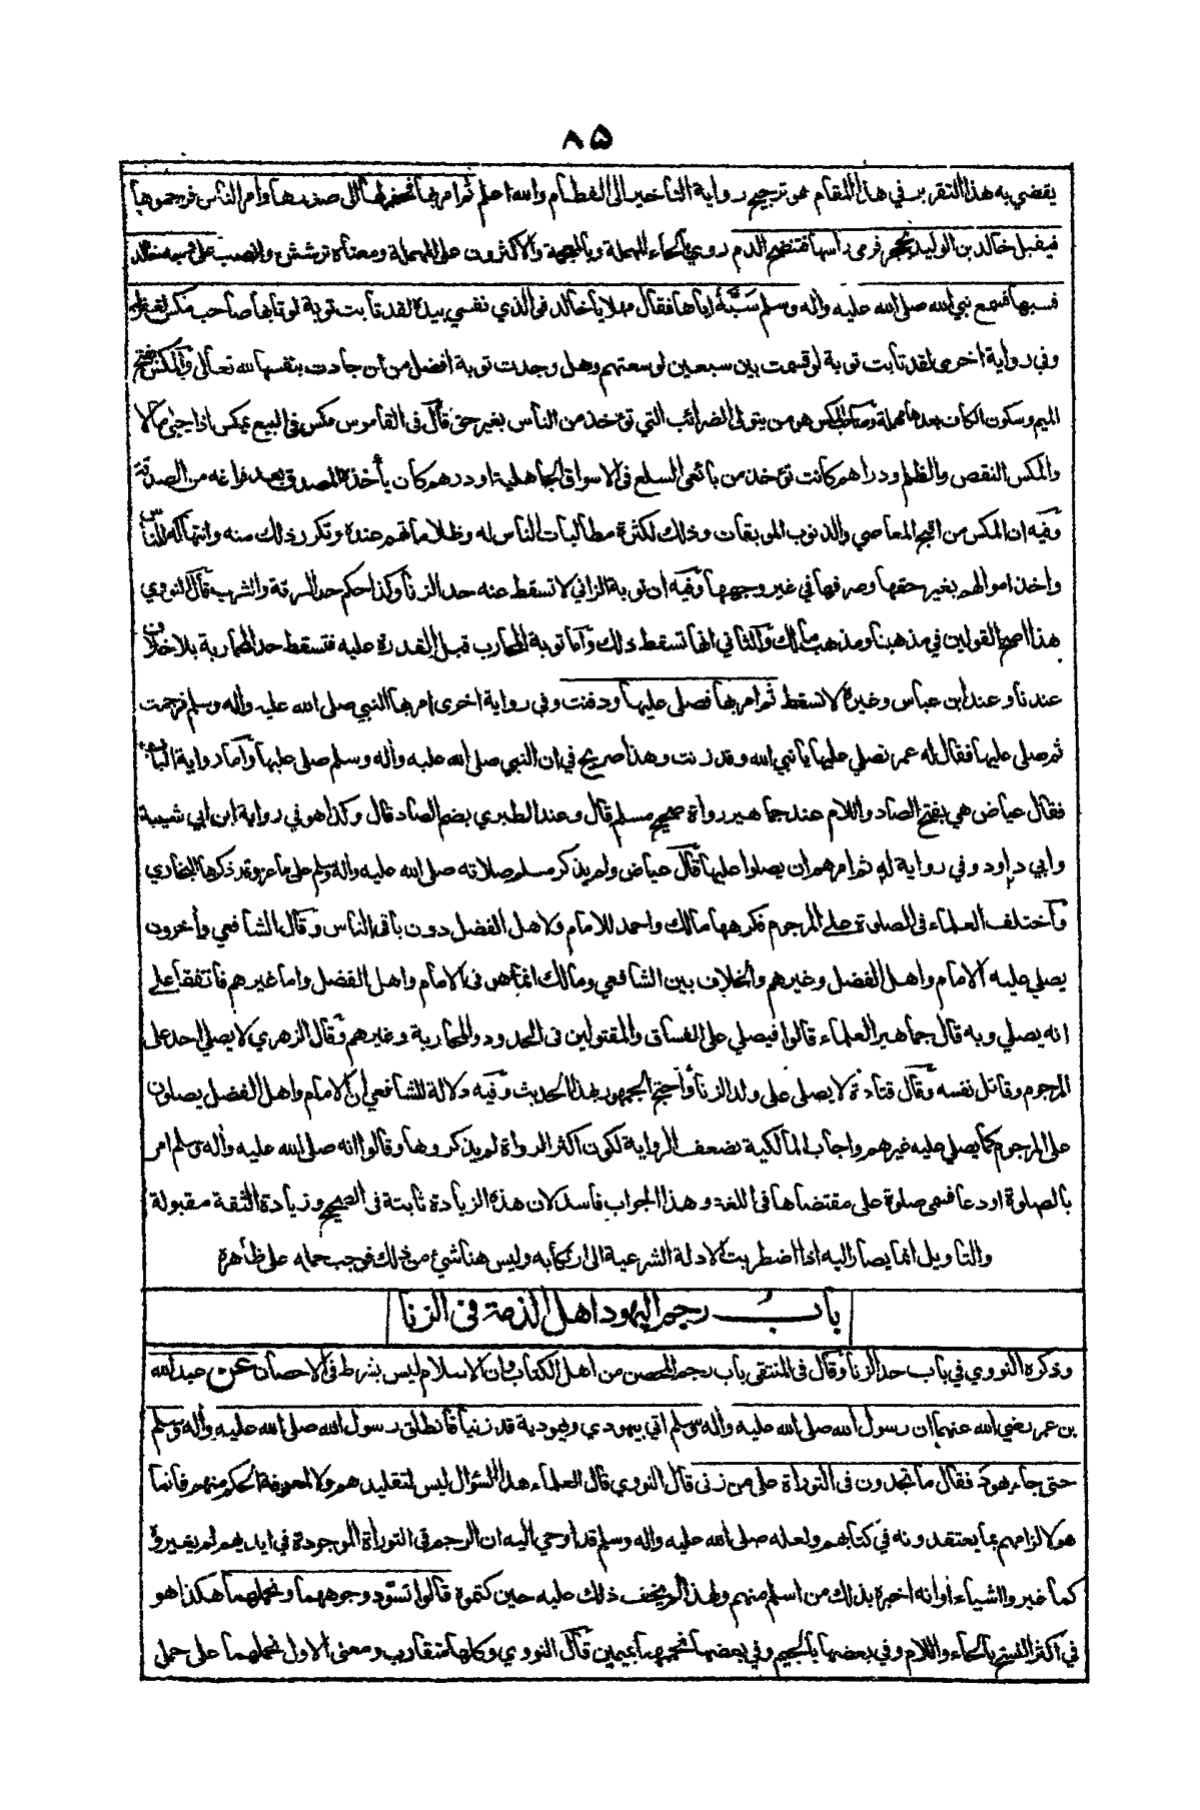 ٨٥
يقضي به هذا التقرير في هذا المقام عن ترجيح رواية التأخير الى الفطام والله اعلم ثم امر بها فحفر لها الى صدرها وامر الناس فرجموها
فيقبل خالد بن الوليد بحجر فرمى رأسها فتنضح الدم روي بالحاء المهملة وبالمعجمة والاكثرون على المهملة ومعناه ترشش وانصب على وجه خالد
فسبها فسمع نبي الله صلى الله عليه واله وسلم سَبَّهُ اياها فقال مهلا يا خالد فوالذي نفسي بيده لقد تابت توبة لو تابها صاحب مكس لغفر له
وفي رواية اخرى لقد تابت توبة لو قسمت بين سبعين لوسعتهم وهل وجدت توبة افضل من أن جادت بنفسها لله تعالى والمكس بفتح
الميم وسكون الكاف بعدها مهملة وصاحب المكس هو من يتولى الضرائب التي تؤخذ من الناس بغير حق قال في القاموس مكس في البيع يمكس اذا جبى مالا
والمكس النقص والظلم ودراهم كانت تؤخذ من بائعي السلع في الاسواق الجاهلية او درهم كان يأخذه المصدق بعد فراغه من الصدقة
وفيه ان المكس من اقبح المعاصي والذنوب الموبقات وذلك لكثرة مطالبات الناس له وظلاماتهم عنده وتكرر ذلك منه وانتهاكه للناس
واخذ اموالهم بغير حقها وصرفها في غير وجهها وفيه ان توبة الزاني لا تسقط عنه حد الزنا وكذا حكم حد السرقة والشرب قال النووي
هذا اصح القولين في مذهبنا ومذهب مالك والثاني انها تسقط ذلك وأما توبة المحارب قبل القدرة عليه فتسقط حد المحاربة بلا خلاف
عندنا وعند ابن عباس وغيره لا تسقط ثم امر بها فصلى عليها ودفنت وفي رواية اخرى امر بها النبي صلى الله عليه واله وسلم فرجمت
ثم صلى عليها فقال له عمر تصلي عليها يا نبي الله وقد زنت وهذا صريح في ان النبي صلى الله عليه واله وسلم صلى عليها وأما رواية الباب
فقال عياض هي بفتح الصاد واللام عند جماهير رواة صحيح مسلم قال وعند الطبري بضم الصاد قال وكذا هو في رواية ابن ابي شيبة
وابي داود وفي رواية له ثم امرهم ان يصلوا عليها قال عياض ولم يذكر مسلم صلاته صلى الله عليه واله وسلم على ماعز وقد ذكرها البخاري
وأختلف العلماء في الصلوة على المرجوم فكرهها مالك واحمد للامام ولاهل الفضل دون باقي الناس وقال الشافعي وأخرون
يصلي عليه الامام واهل الفضل وغيرهم والخلاف بين الشافعي ومالك انما هو في الامام واهل الفضل واما غيرهم فاتفقا على
انه يصلي وبه قال جماهير العلماء قالوا فيصلي على الفساق والمقتولين في الحدود والمحاربة وغيرهم وقال الزهري لا يصلي احد على
المرجوم وقاتل نفسه وقال قتادة لا يصلى على ولد الزنا وأحتج الجمهور بهذا الحديث وفيه دلالة للشافعي ان الامام واهل الفضل يصلون
على المرجوم كما يصلي عليه غيرهم واجاب المالكية بضعف الرواية لكون اكثر الرواة لم يذكروها وقالوا انه صلى الله عليه واله وسلم امر
بالصلوة او دعا فسمى صلوة على مقتضاها في اللغة وهذا الجواب فاسد لان هذه الزيادة ثابتة في الصحيح وزيادة الثقة مقبولة
والتاويل انما يصار اليه اذا اضطربت الادلة الشرعية الى ارتكابه وليس هنا شيئ من ذلك فوجب حمله على ظاهره
باب رجم اليهود اهل الذمة في الزنا
وذكره النووي في باب حد الزنا وقال في المنتقى باب رجم المحصن من اهل الكتاب وان الاسلام ليس بشرط في الاحصان عن عبد الله
بن عمر رضي الله عنهما ان رسول الله صلى الله عليه واله وسلم اتي بيهودي ويهودية قد زنيا فانطلق رسول الله صلى الله عليه واله وسلم
حتى جاء يهود فقال ما تجدون في التوراة على من زنى قال النووي قال العلماء هذا السؤال ليس لتقليدهم ولا لمعرفة الحكم منهم فانما
هو لالزامهم بما يعتقدونه في كتابهم ولعله صلى الله عليه واله وسلم قد اوحي اليه ان الرجم في التوراة الموجودة في ايديهم لم يغيروه
كما غيروا اشياء أو انه اخبره بذلك من اسلم منهم ولهذا لم يخف ذلك عليه حين كتموه قالوا نسوّد وجوههما ونحملهما هكذا هو
في اكثر النسخ بالحاء واللام وفي بعضها بالجيم وفي بعضها نحممهما بميمين قال النووي وكلها متقارب ومعنى الاول نحملهما على حمل